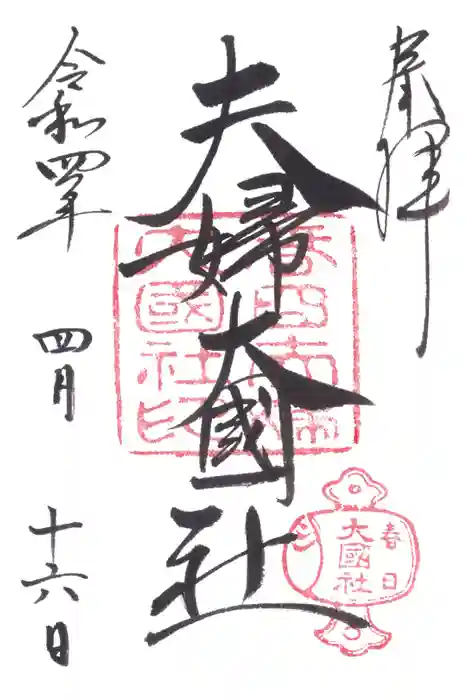 奉拝
夫婦大國社
令和四年
四月
十六日
春日
大國社